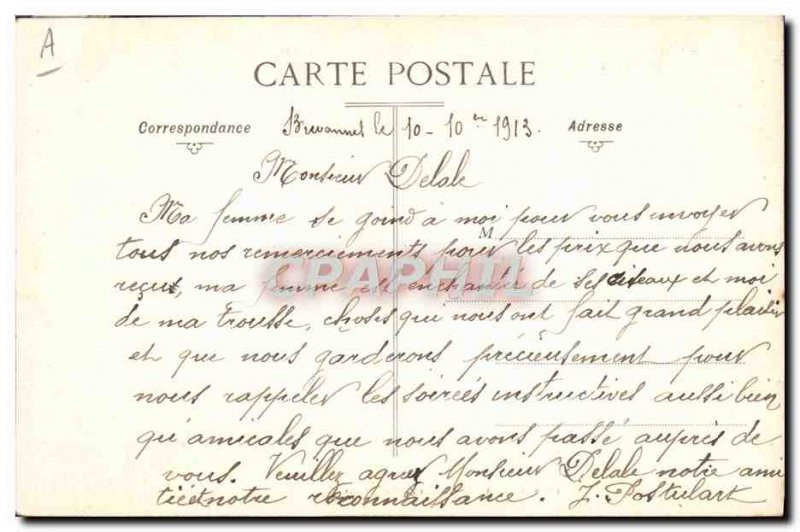 A
CARTE POSTALE
Correspondance le 10-10er 1913. Adresse
Monsieur Delale
Ma femme se goind à moi pour vous envoyer
M
tous nos remerciements pour les prix que nous avons
reçut, ma femme est enchantée de ses ciseaux et moi
de ma trousse, choses qui nous ont fait grand plaisir
et que nous garderons précieusement pour
nous rappeler les soirées instructives aussi bien
qu'amicales que nous avons passé auprès de
vous. Veuillez agréer Monsieur Delale notre ami
tié et notre reconnaissance. J. Postulart
CPAPHIL